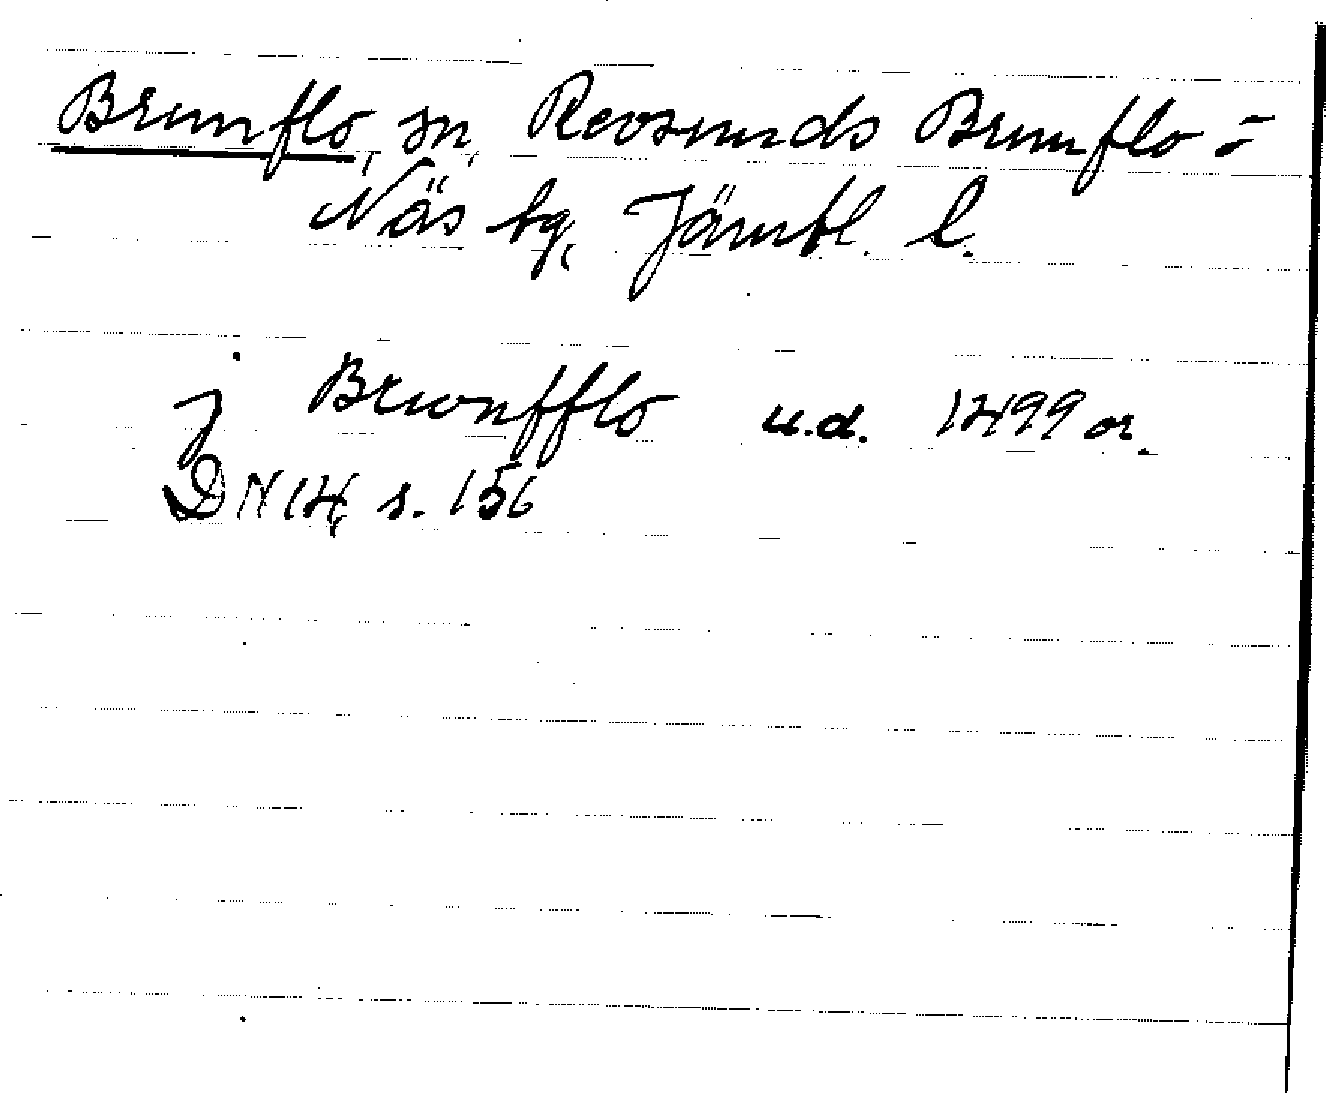 Brunflo, sn, Revsunds Brunflo o
Näs tg, Jämtl. l.
j Brwnfflo u.d. 1499 or.
DN 14, s. 156